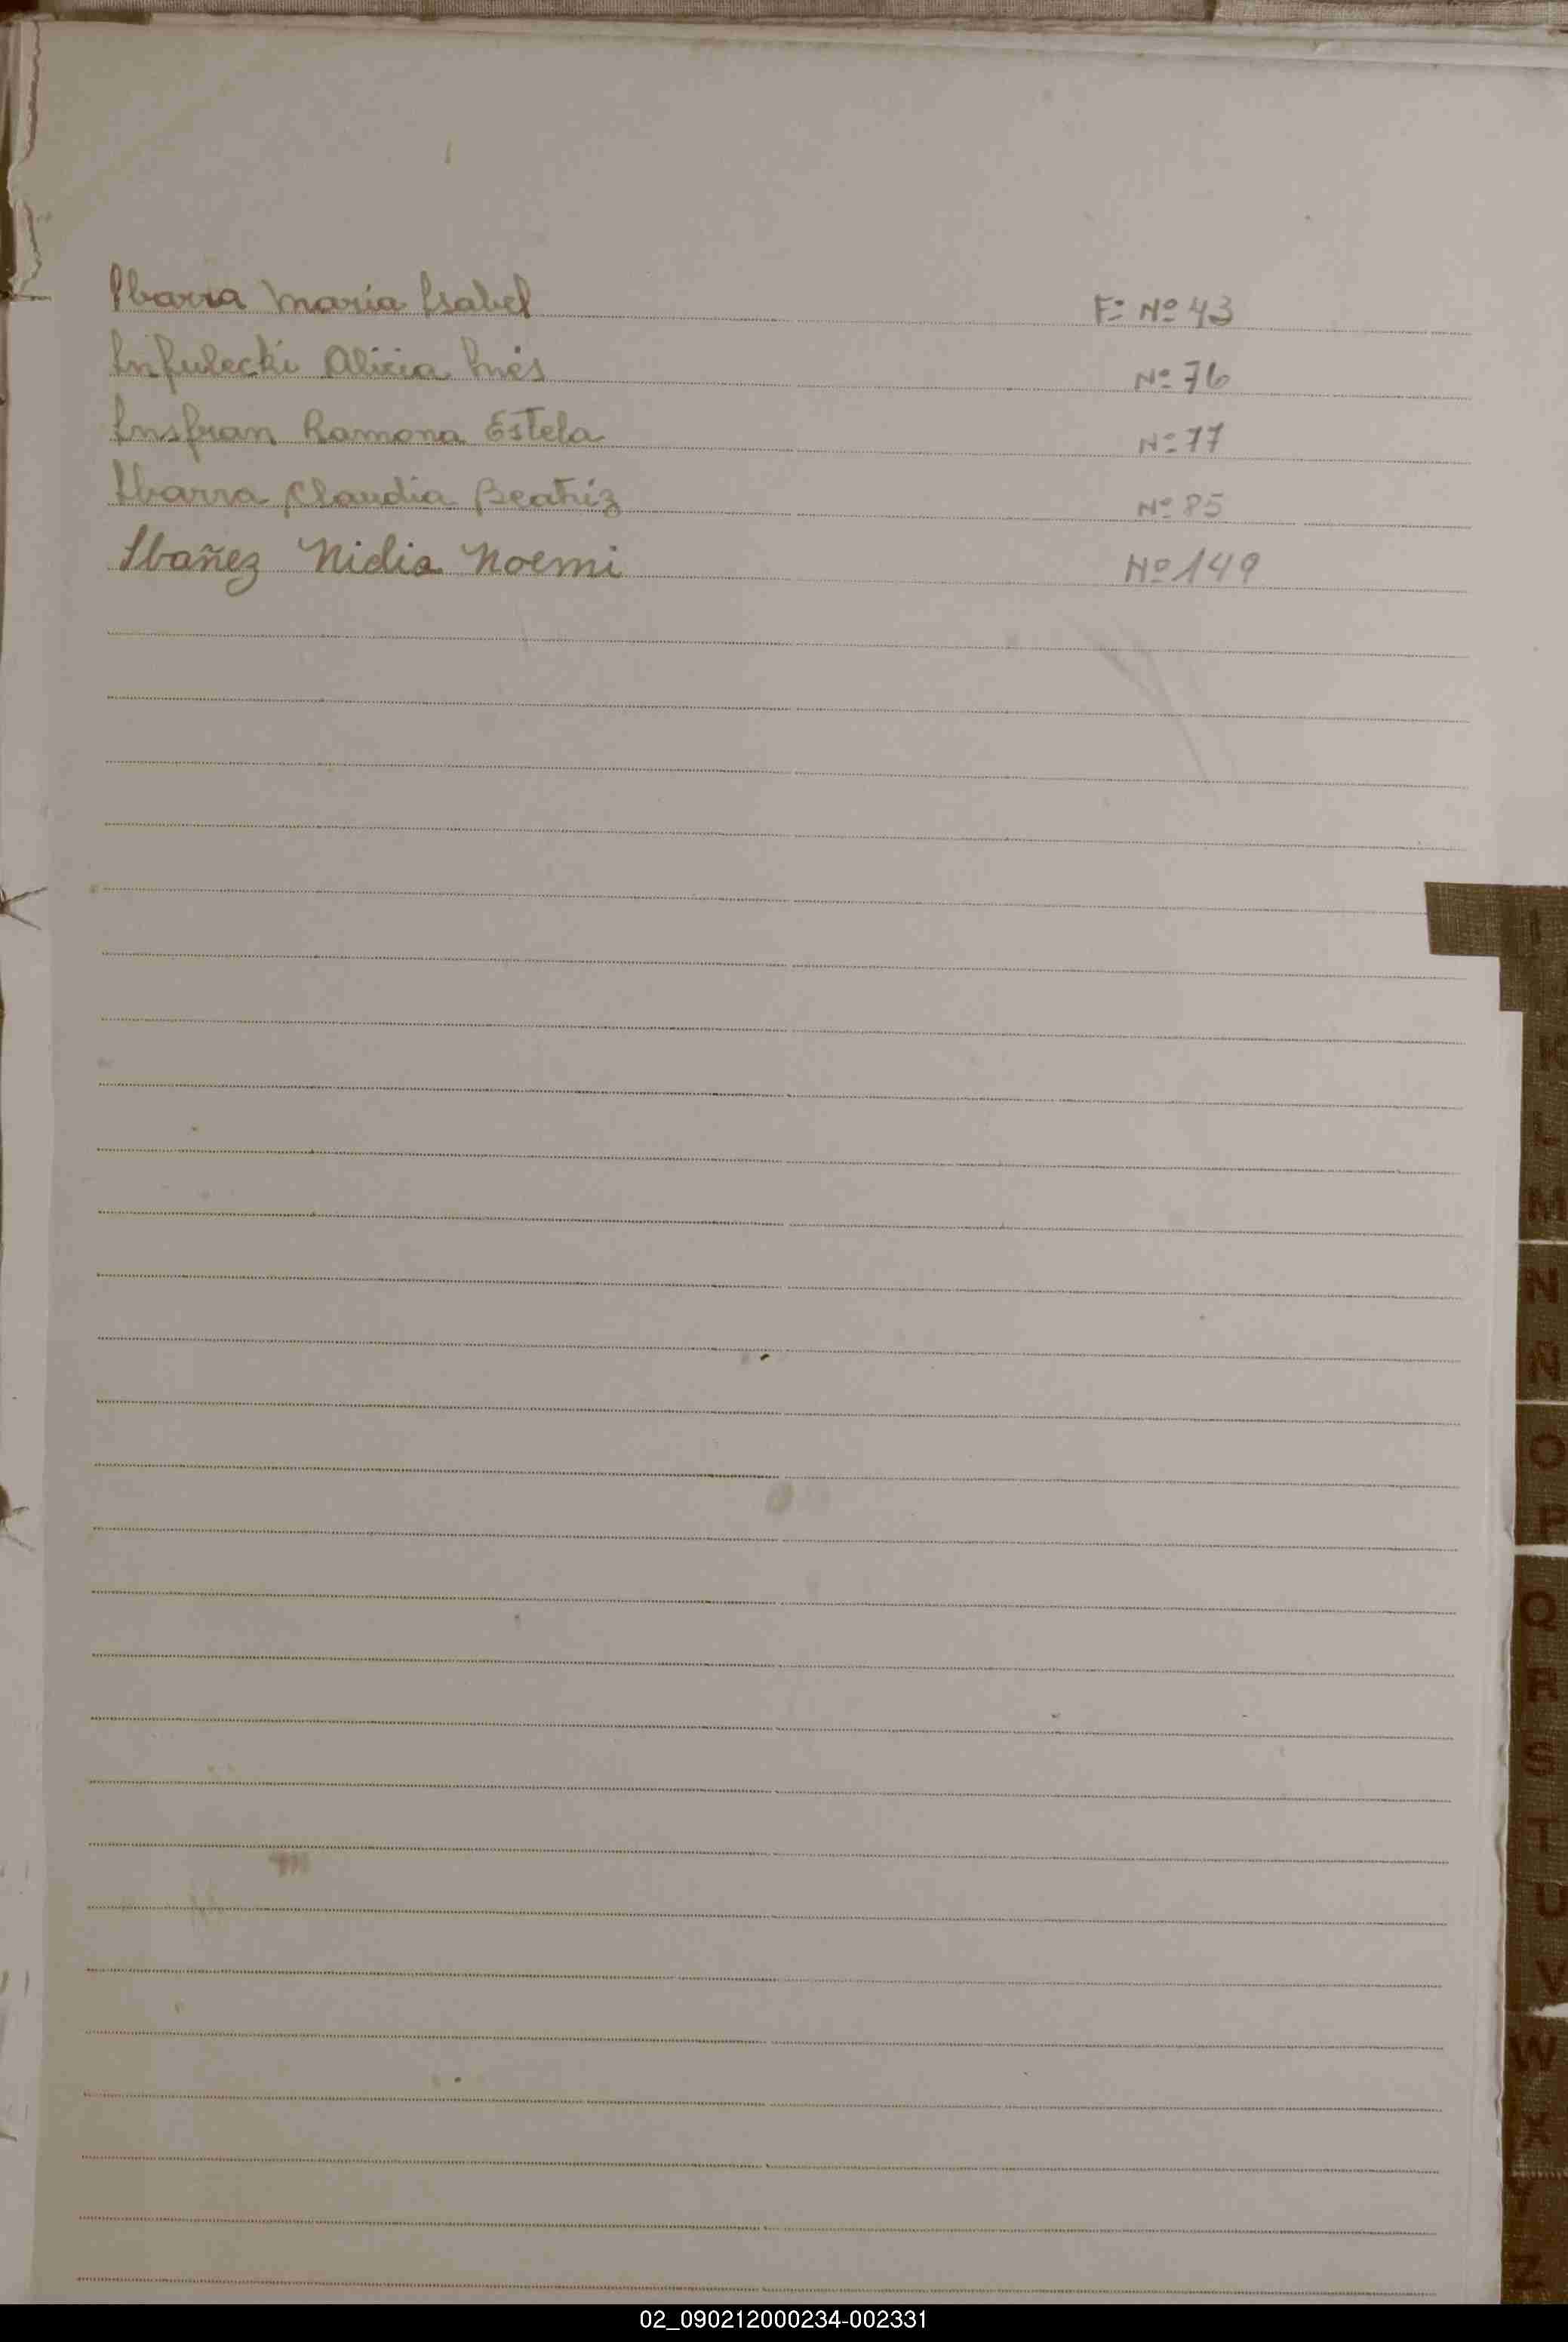 Ibarra Maria Isabel F: Nº 43
Infulecki Alicia Inés Nº 76
Insfran Ramona Estela Nº 77
Ibarra Claudia Beatriz Nº 85
Ibañez Nidia Noemi Nº 149
I
K
L
M
N
Ñ
O
P
Q
R
S
T
U
V
W
X
Y
Z
02_090212000234-002331